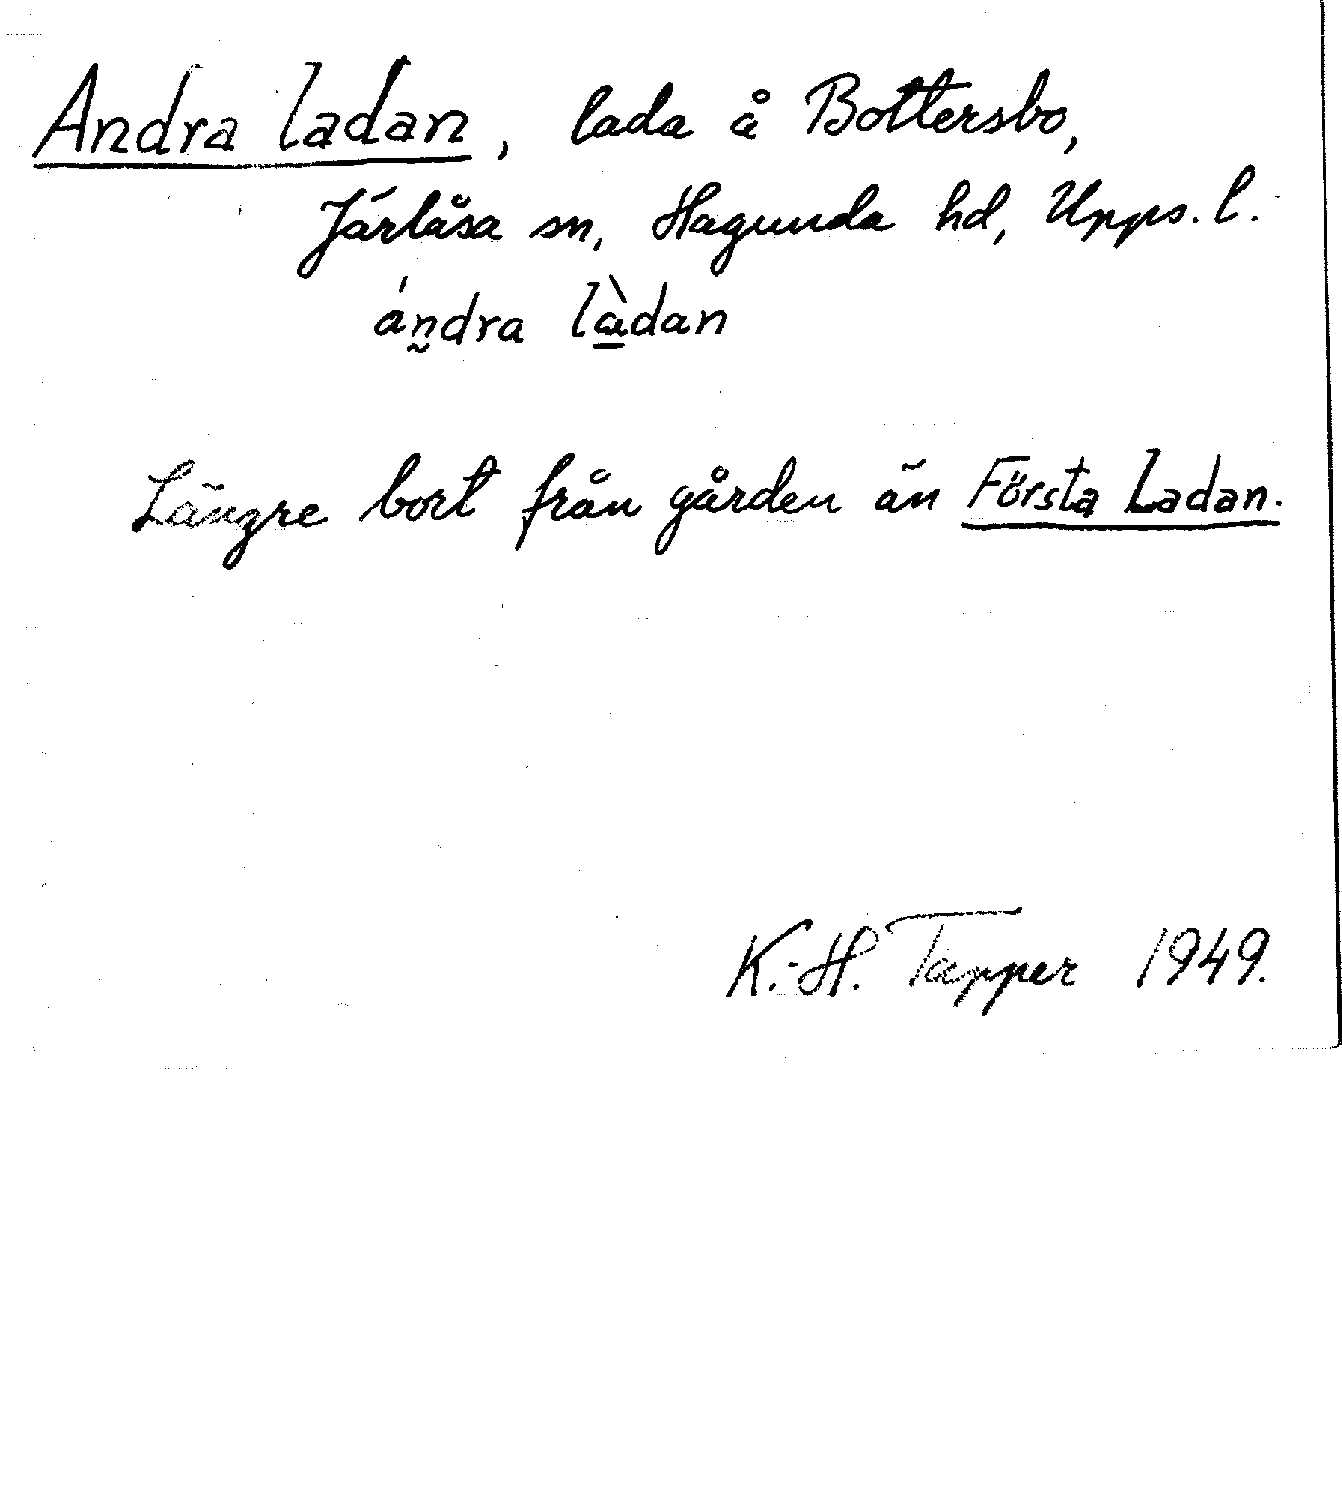 Andra ladan, lada å Bottersbo,
Järlåsa sn, Hagunda hd, Upps. l.
ándra làdan
Längre bort från gården än Första Ladan.
K.-H. Tapper 1949.